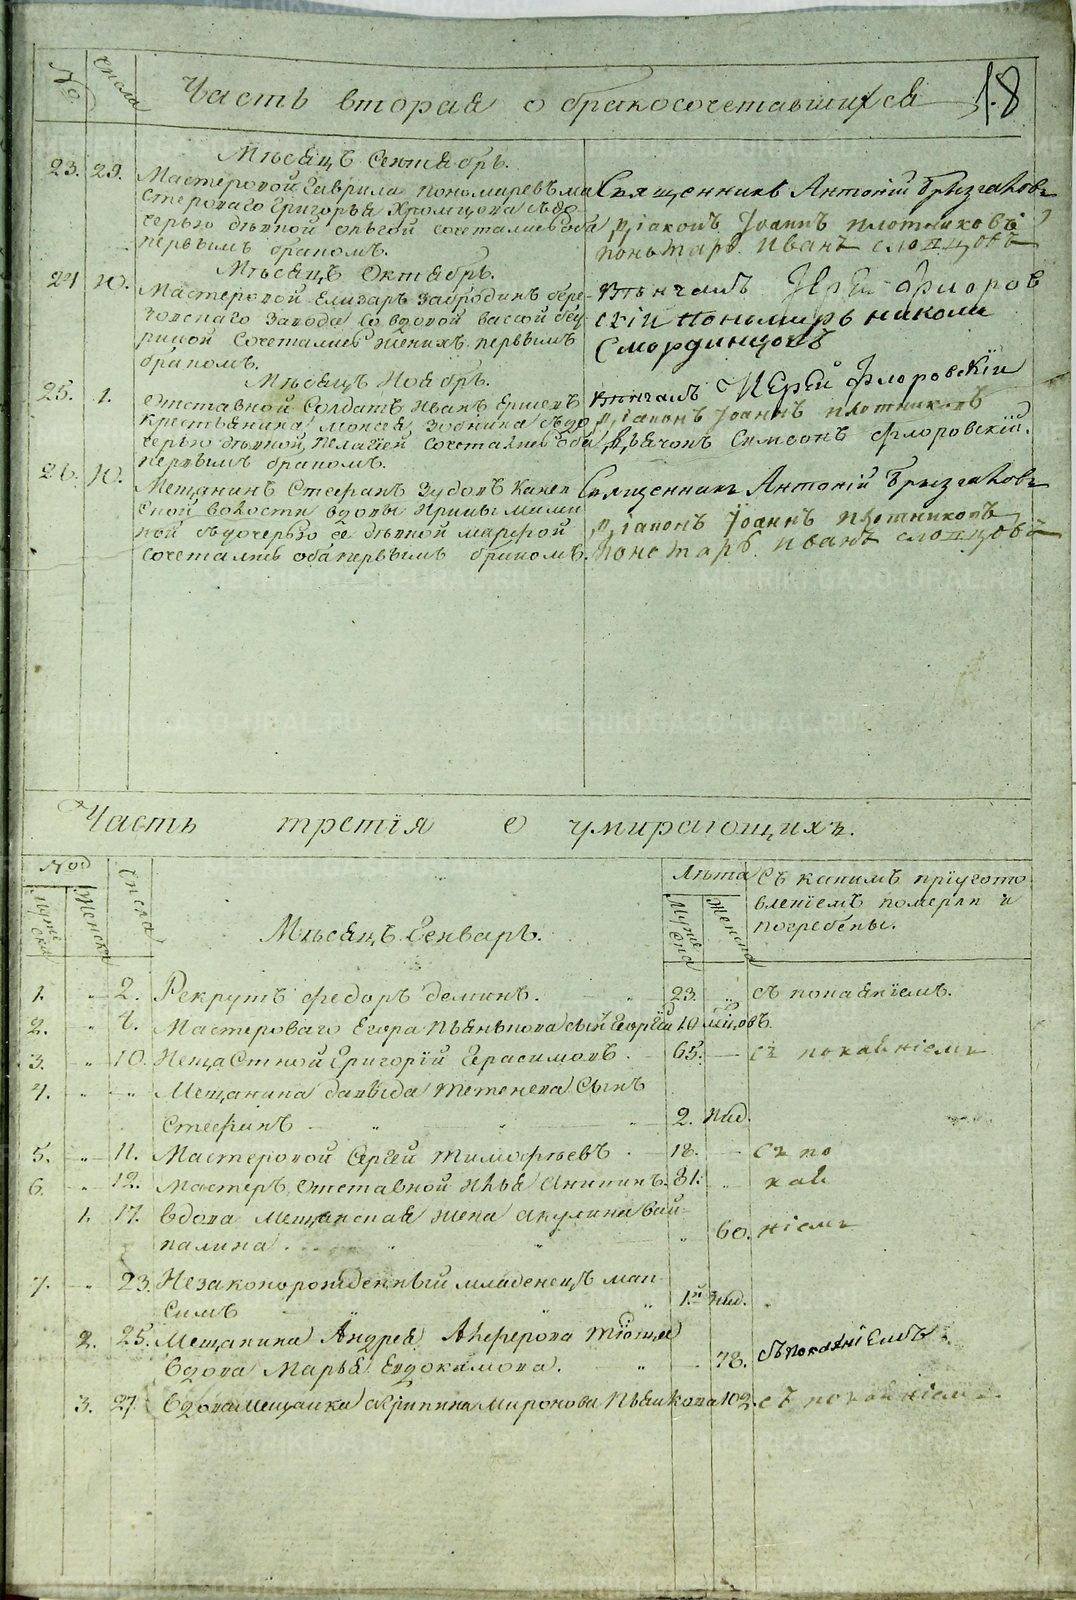 Часть вторая о бракосочетавшихся
18
№
числа
Мѣсяцъ Сентябрь.
23. 29. Мастеровой Гаврила Пономаревъ ма
стероваго Григорья Хромцова съ до
черью дѣвкой Ольгой сочетались оба
первымъ бракомъ.
Священникъ Антоній Брызгаловъ
Діаконъ Іоаннъ Плотниковъ
поньмарь Иванъ Слопцовъ
Мѣсяцъ Октябрь.
24 10. Мастеровой Елизаръ Забродинъ бере-
зовскаго Завода со вдовой Вассой
Сочетались женихъ первымъ
бракомъ.
Вѣнчалъ Іерей Флоров
скій Пономарь Николай
Смординцовъ
Мѣсяцъ Ноябрь.
25. 1. отставной Солдатъ Иванъ Ершевъ
крестьянина Моисея Зобнина съ до
черью дѣвкой, Пелагеей сочетались оба
первымъ бракомъ.
вѣнчалъ Іерей Флоровскій
Діаконъ Іоаннъ Плотниковъ
Дьячокъ Симеонъ Флоровскій.
26. 10. Мещанинъ Стефанъ Зубовъ
ской волости вдовы Ирины
ной съ дочерью ее дѣвкой Марфой
сочетались оба первымъ бракомъ.
Священникъ Антоній Брызгаловъ
Діаконъ Іоаннъ Плотниковъ
Понамарь Иванъ Слопцовъ
Часть третія о умирающихъ.
№
Муже
ска
Женска
Числа
Мѣсяцъ Генварь.
Лѣта
Муже
ска
Женска
Съ какимъ пріугото
вленіемъ померли и
погребены.
1. „ 2. Рекрутъ Федоръ Деминъ. 23. „ съ покаяніемъ.
2. „ 4. Мастероваго Егора Пьянькова сынъ Георгій 10 мцовъ.
3. „ 10. Нещастной Григорій Герасимовъ. 65. съ покаяніемъ
4. „ „ Мещанина Давыда Тетенева Сынъ
Стефанъ 2. нид.
5. „ 11. Мастеровой Сергей Тимофѣевъ. 18. съ по
6. „ 12. Мастеръ, Отставной Илья Аникинъ. 81. „ кая
1. 17. Вдова Мещанская жена Акулина Бай-
калина. „ 60. ніемъ
7. „ 23. Незаконорожденный младенецъ мак-
симъ „ 1й нид.
2. 25. Мещанина Андрея Алферова тіоща
вдова Марья Евдокимова. 78. съ покаяніемъ
3. 27. Вдова мещанка Агрипина Миронова Пьянкова 102. съ покаяніемъ
METRIKI.GASO-URAL.RU